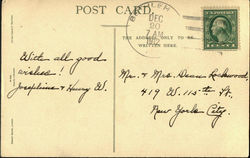 POST CARD.
DEC
20
7 AM
1912
THE ADDRESS ONLY TO BE
WRITTEN HERE.
With all good
wishes!
Josephine & Henry W.
Mr. & Mrs. Dean Lockwood,
419 W. 115th St.
New York City.